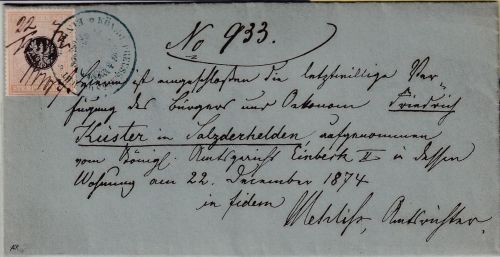 No 933.
Hierin ist eingeschloßen die letztwillige Ver-
fügung des Bürgers und Oekonom Friedrich
Küster in Salzderhelden, aufgenommen
vom Königl. Amtsgericht Einbeck II in dessen
Wohnung am 22. December 1874
in fidem
Mehliss, Amtsrichter.
22